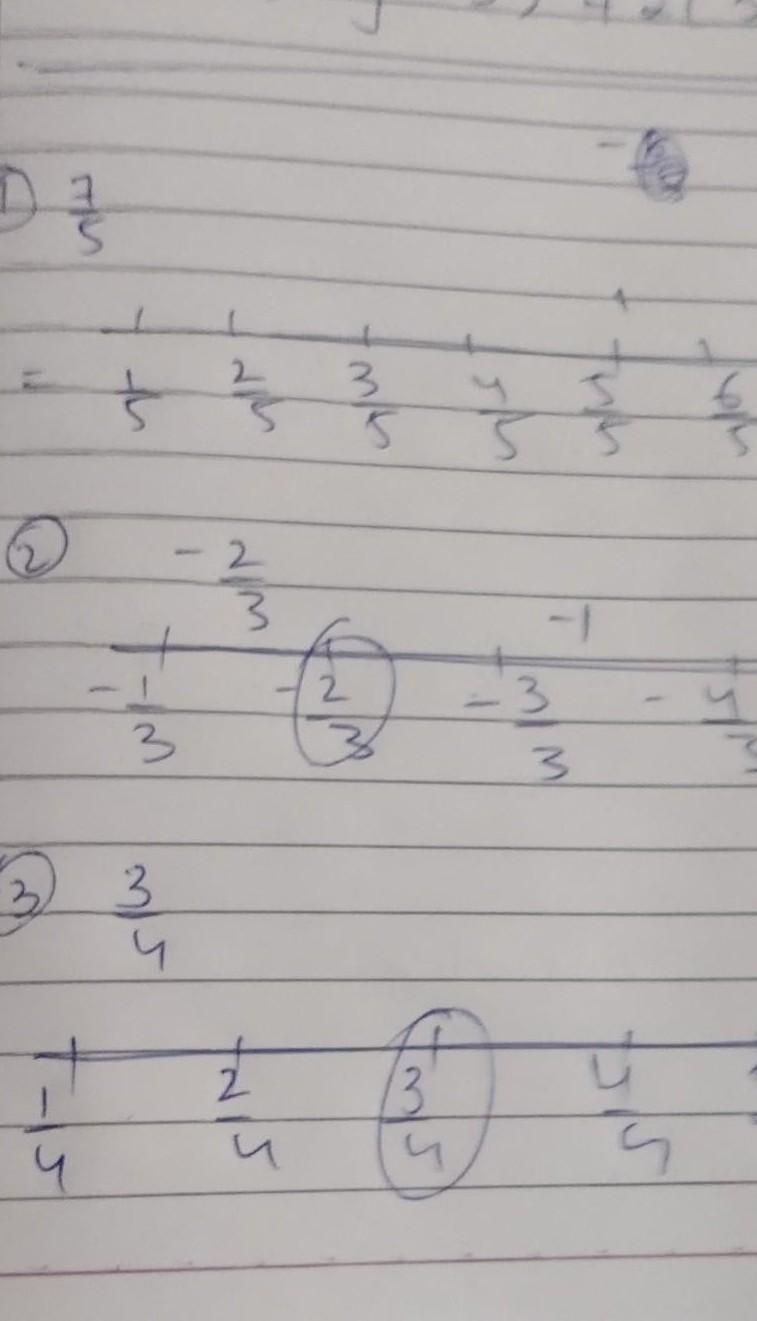 ① 7/5
= 1/5 2/5 3/5 4/5 5/5 6/5
② - 2/3
-1
- 1/3 - 2/3 - 3/3 - 4/3
③ 3/4
1/4 2/4 3/4 4/4